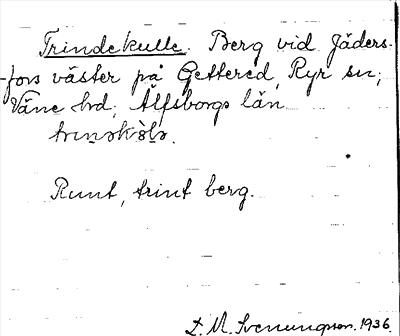 Trindekulle. Berg vid Jäders-
fors väster på Gettered, Ryr sn,
Väne hd, Älfsborgs län
Runt, trint berg.
L. M. Svenungsson. 1936.